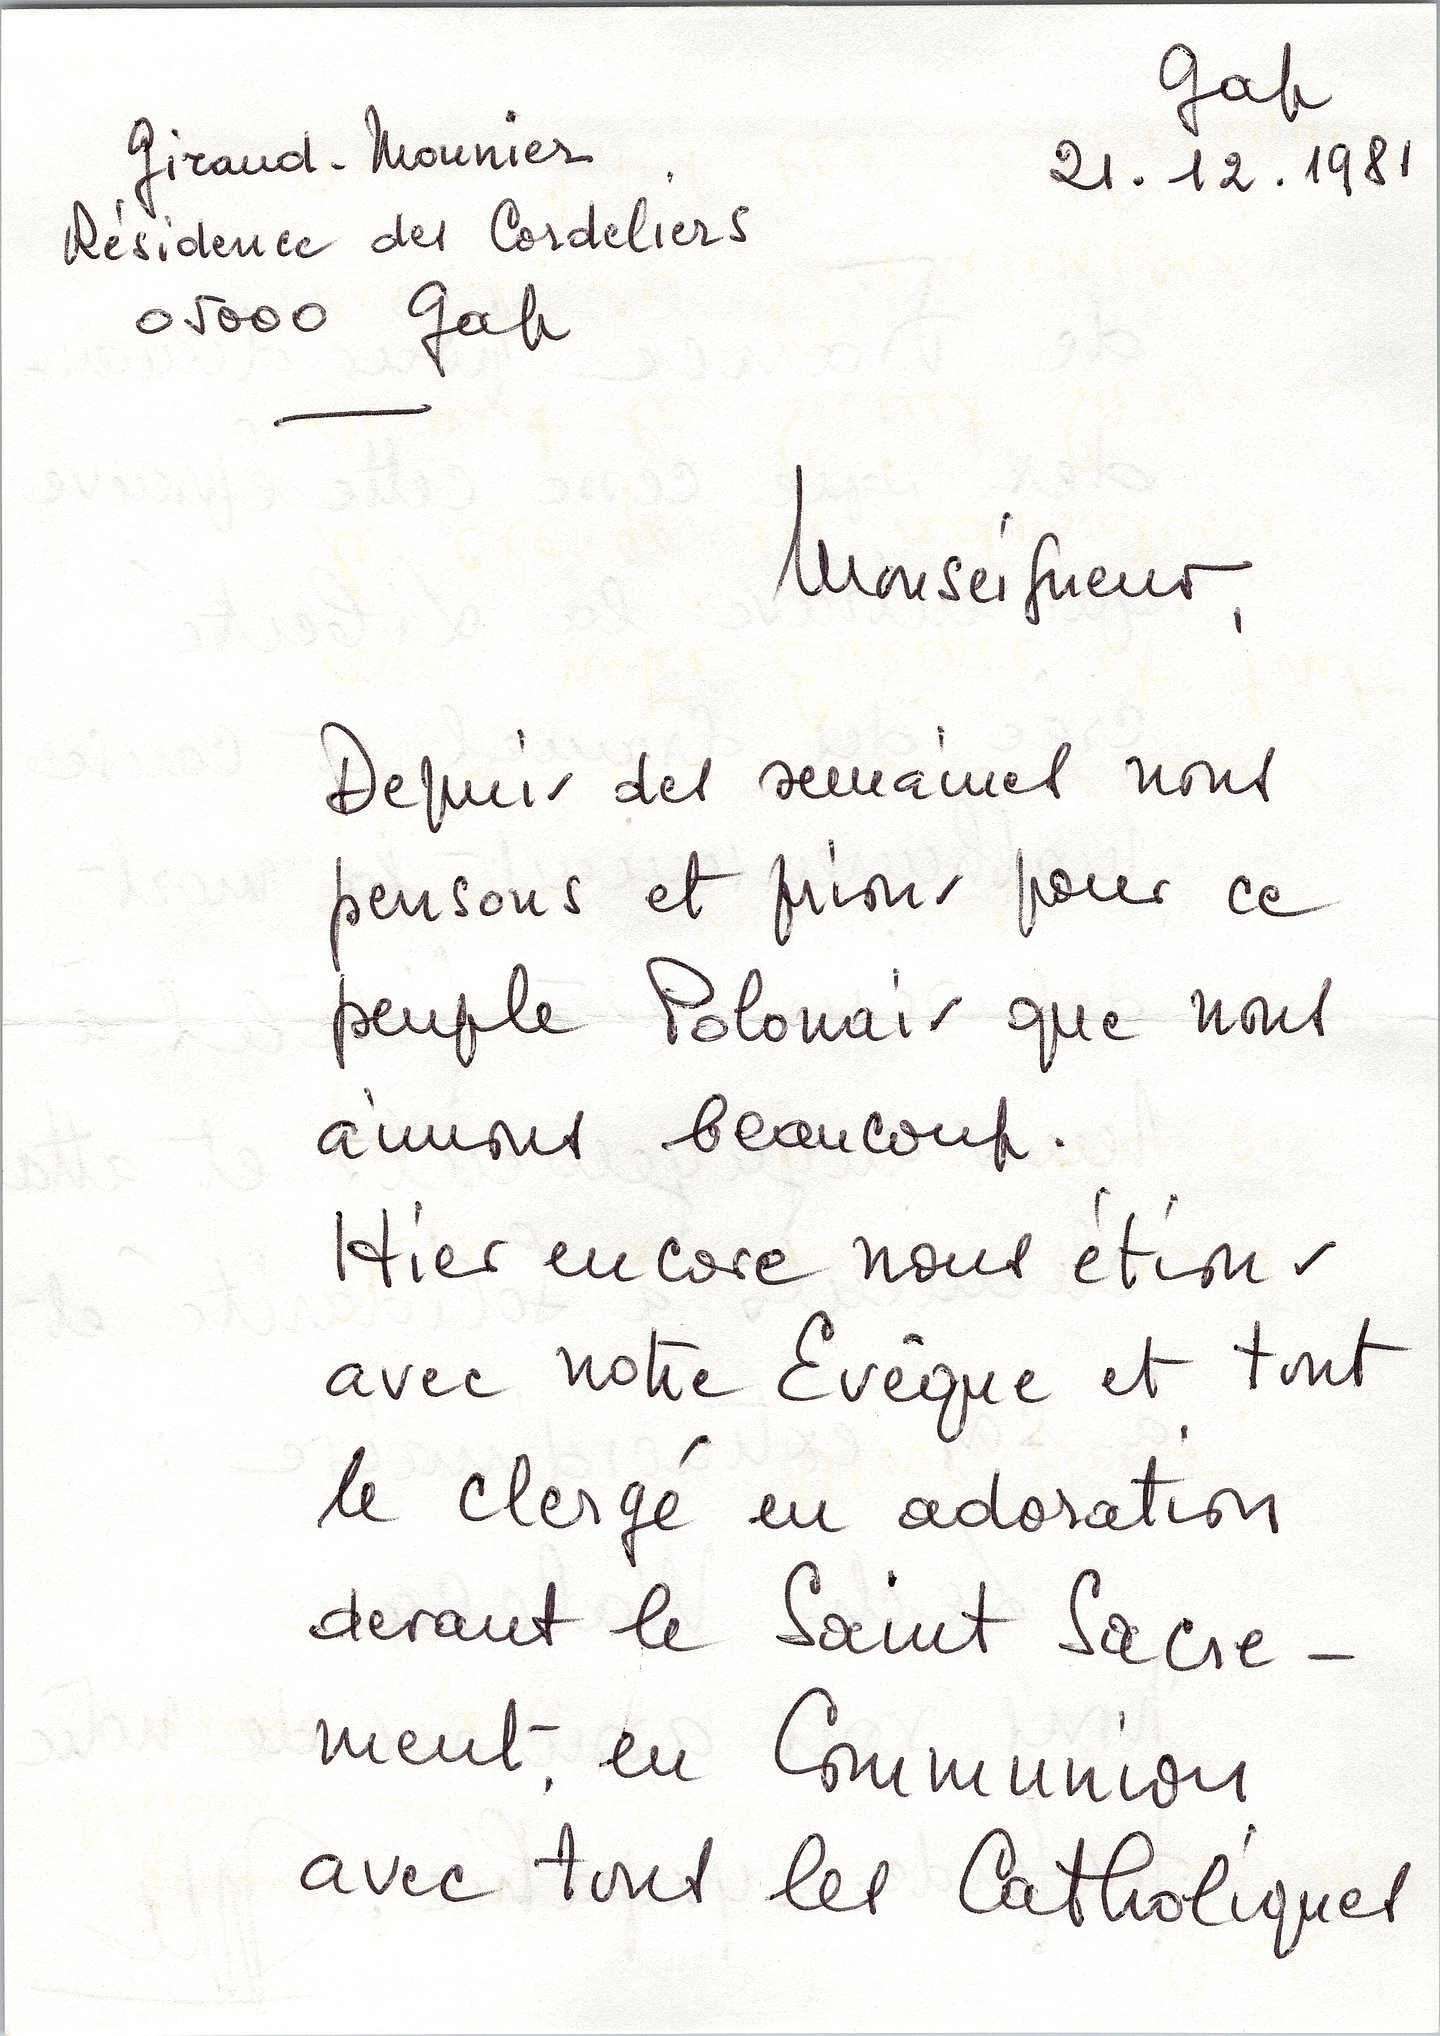 Gap
21.12.1981
Giraud-Mounier
Résidence des Cordeliers
05000 Gap
Monseigneur,
Depuis des semaines nous
pensons et prions pour ce
peuple Polonais que nous
aimons beaucoup.
Hier encore nous étions
avec notre Evêque et tout
le clergé en adoration
devant le Saint Sacre-
ment, en Communion
avec tous les Catholiques